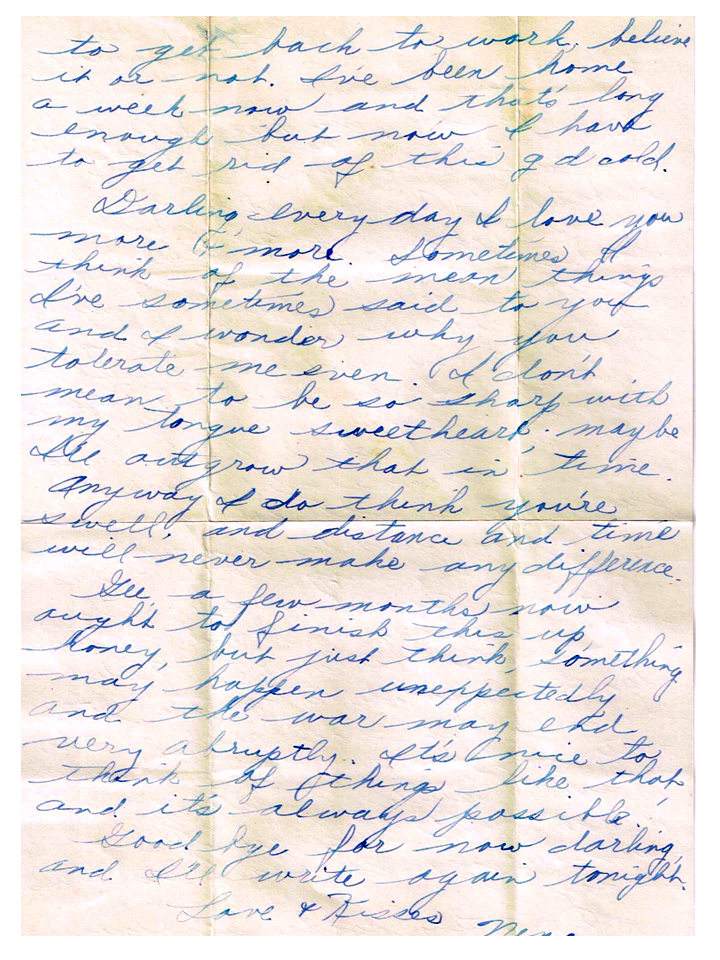 to get back to work, believe
it or not. I've been home
a week now and that's long
enough but now I have
to get rid of this g d cold.
Darling every day I love you
more & more. Sometimes I
think of the mean things
I've sometimes said to you
and I wonder why you
tolerate me even. I don't
mean to be so sharp with
my tongue sweetheart, maybe
I'll outgrow that in time.
Anyway I do think you're
swell, and distance and time
will never make any difference.
Gee, a few months now
ought to finish this up
honey, but just think, something
may happen unexpectedly
and the war may end
very abruptly. It's nice to
think of things like that,
and it's always possible.
Good bye for now darling,
and I'll write again tonight.
Love & Kisses